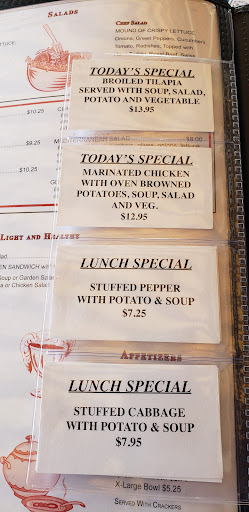 SALADS
CHEF SALAD
MOUND OF CRISPY LETTUCE
Onions, Green Peppers, Cucumbers,
Tomato, Radishes, Topped with
TODAY'S SPECIAL
BROILED TILAPIA
SERVED WITH SOUP, SALAD,
POTATO AND VEGETABLE
$13.95
$10.25
MEDITERRANEAN SALAD $8.00
$9.25
TODAY'S SPECIAL
MARINATED CHICKEN
WITH OVEN BROWNED
POTATOES, SOUP, SALAD
AND VEG.
$12.95
$10.25
LIGHT AND HEALTHY
LUNCH SPECIAL
STUFFED PEPPER
WITH POTATO & SOUP
$7.25
EN SANDWICH with
Soup or Garden Salad
a or Chicken Salad
APPETIZERS
LUNCH SPECIAL
STUFFED CABBAGE
WITH POTATO & SOUP
$7.95
X-Large Bowl $5.25
SERVED WITH CRACKERS